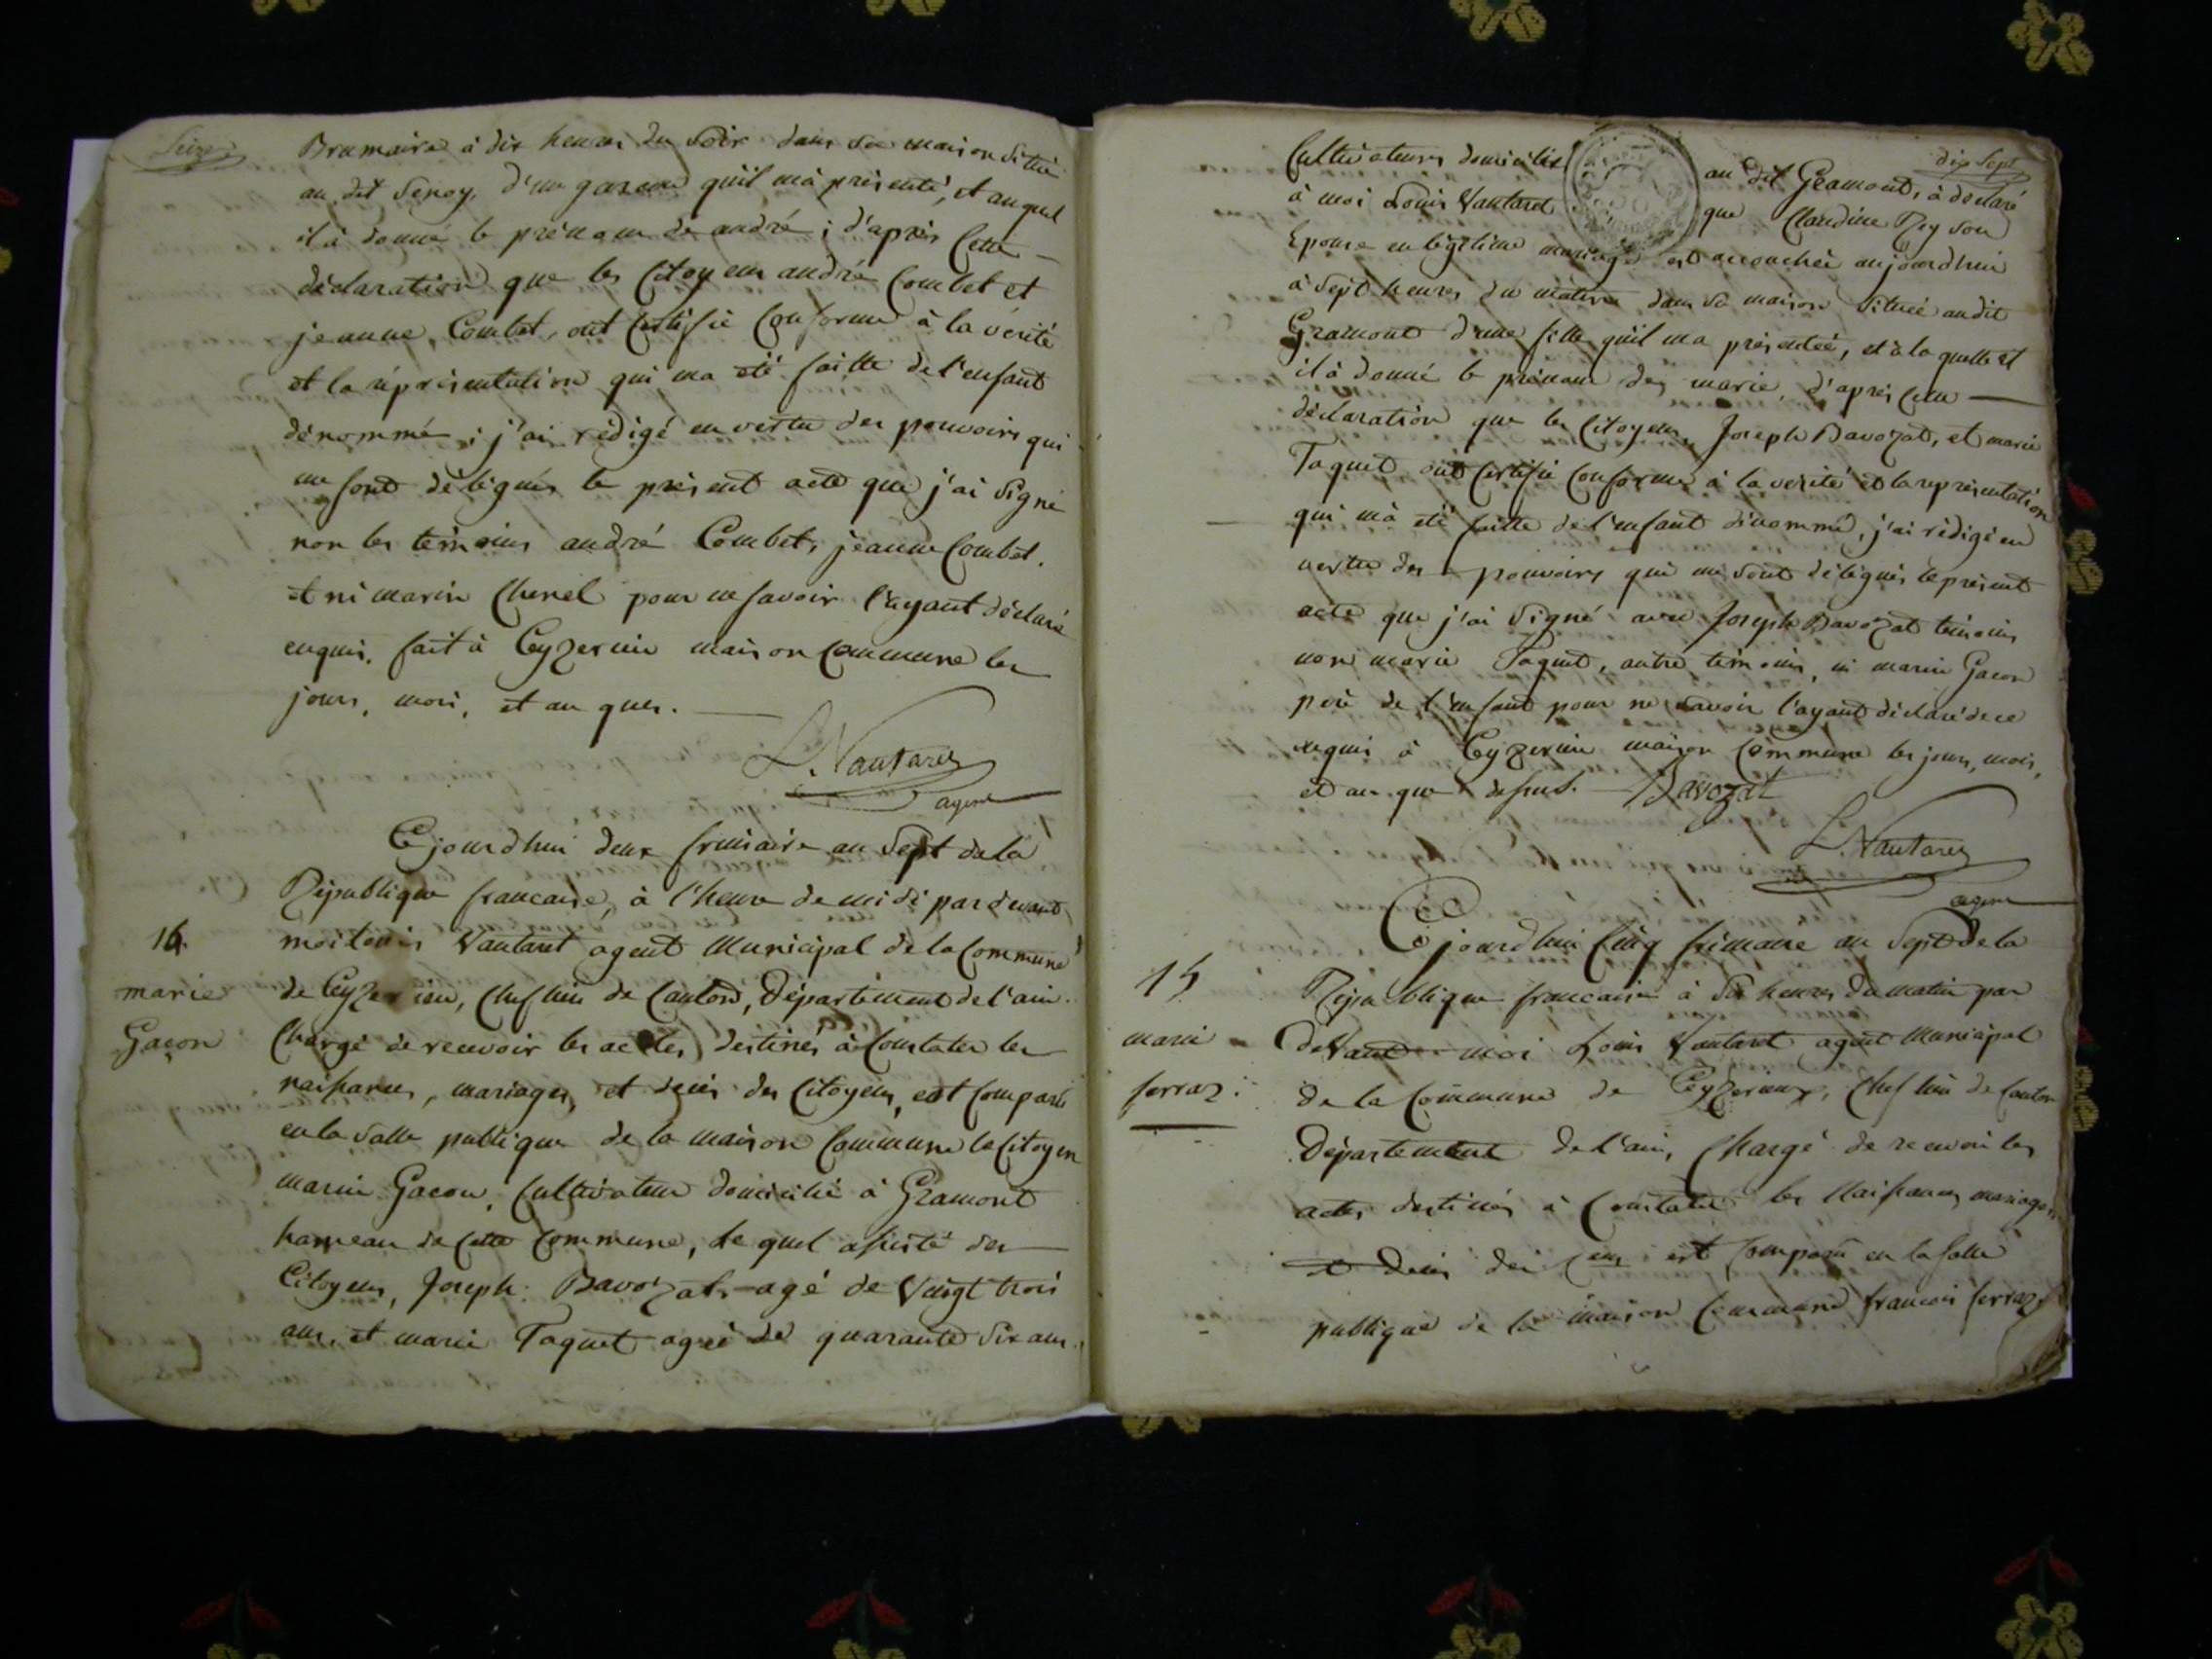 Seize
Brumaire à dix heures du Soir dans sa maison Située
au dit Senoy, d'un garcon qu'il m'à présenté, et auquel
il à donné le prénom de andré ; d'après Cette
déclaration que les Citoyens andré Combet et
jeanne Combet, ont Certifié Conforme à la vérité
et la réprésentation qui ma été faitte de l'enfant
dénommé ; j'ai rédigé en vertu des pouvoirs qui
me sont délégués le présent acte que j'ai Signé
non les témoins andré Combet, jeanne Combet.
et ni marin Chenel pour ne savoir l'ayant déclaré
enquis. fait à Ceyzerieu maison Commune les
jours, mois, et an que.
L. Vautarez
agent
Cejourdhui deux frimaire an Sept de la
République francaise, à l'heure de midi par devant
16. moi Louis Vautaret agent Municipal de la Commune
marie de Ceyzerieu, Chef lieu de Canton, Département de l'ain.
Gacon Chargé de recevoir les actes destinés à Constater les
naissances, mariages, et décès des Citoyens, est Comparu
en la Salle publique de la maison Commune le Citoyen
marin Gacon, Cultivateur domicilié à Gramont
hameau de Cette Commune, le quel assisté des
Citoyens, Joseph Bavozat agé de Vingt trois
ans, et marie Taquet agée de quarante Six ans.
dix Sept
Cultivateurs domiciliés au dit Gramont, à déclaré
à moi Louis Vautaret que Claudine Rey Son
Epouse en légitime mariage est accouchée aujourdhui
à Sept heures du matin dans Sa maison Située audit
Gramont d'une fille qu'il ma présentée, et à la quelle
il à donné le prénom de marie, d'après Cette
déclaration que les Citoyens Joseph Bavozat, et marie
Taquet ont Certifié Conforme à la verité et la représentation
qui m'à été faitte de l'enfant dénommé, j'ai rédigé en
vertu des pouvoirs qui me Sont délégués le présent
acte que j'ai Signé avec Joseph Bavozat témoins
non marie Taquet, autre témoins, ni marin Gacon
père de l'enfant pour ne Savoir l'ayant déclaré de ce
requis à Ceyzerieu maison Commune les jours, mois,
et an que dessus. Bavozat
L. Vautarez
agent
Cejourdhui Cinq frimaire an Sept de la
15 République francaise à Six heures du matin par
marie Devant moi Louis Vautaret agent Municipal
ferraz de la Commune de Ceyzerieux, Chef lieu de Canton
Département de l'ain, Chargé de recevoir les
actes destinés à Constater les Naissances, mariages
et Décès des Cens est Comparu en la Salle
publique de la maison Commune francois ferraz